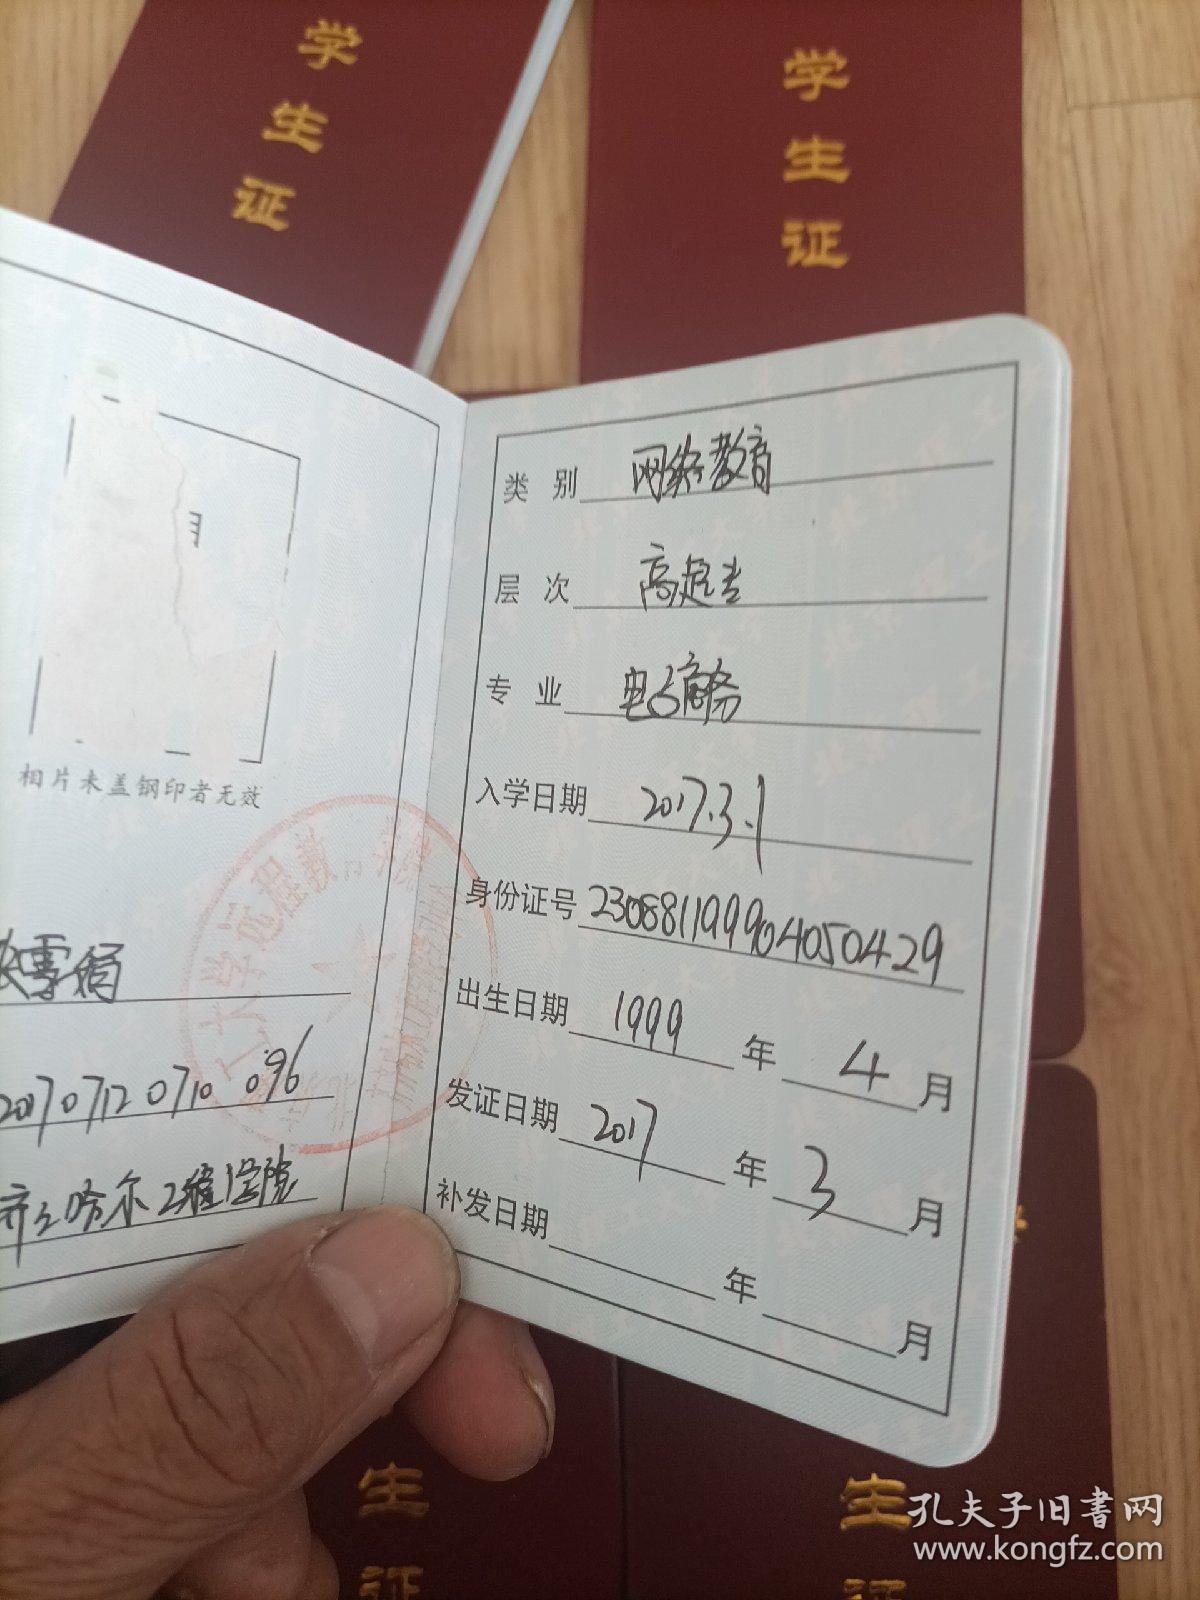 学生证
学生证
相片未盖钢印者无效
雪娟
20170712 0710 096
齐齐哈尔工程学院
类别 网络教育
层次 高起专
专业 电子商务
入学日期 2017.3.1
身份证号 230881199904050429
出生日期 1999 年 4 月
发证日期 2017 年 3 月
补发日期 年 月
生证
生证
孔夫子旧书网
www.kongfz.com